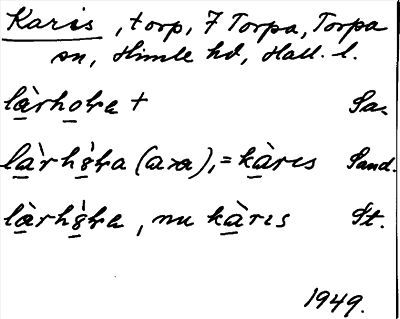 Karis, torp, 7 Torpa, Torpa
sn, Himle hd, Hall. l.
là̱rho̱ka † Sa.
là̱rhö̱̀ka (a>a), = kà̱rıs Sand.
là̱rhö̱̀ka, nu kà̱rıs St.
1949.